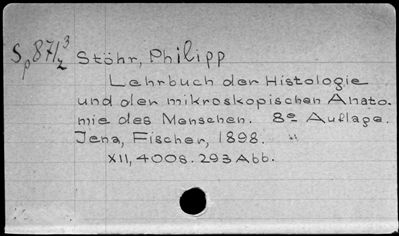 Sp 871z³ Stöhr, Philipp
Lehrbuch der Histologie
und der mikroskopischen Anato-
mie des Menschen. 8e Auflage.
Jena, Fischer, 1898.
XII, 400s. 293 Abb.